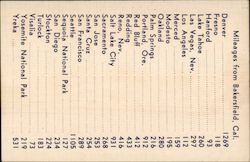 Mileages from Bakersfield, Cal.
Denver 1269
Fresno 118
Hanford 93
Lake Tahoe 260
Las Vegas, Nev. 297
Los Angeles 112
Merced 159
Modesto 195
Oakland 280
Palm Springs 216
Portland, Ore.
Red Bluff 412
Redding
Reno, Nev. 416
Salt Lake City
Sacramento 268
San Jose 253
Santa Cruz 254
San Francisco 289
Seattle 1105
Sequoia National Park 127
San Diego 237
Stockton 224
Turlock 183
Visalia 73
Yosemite National Park 219
Yreka 531